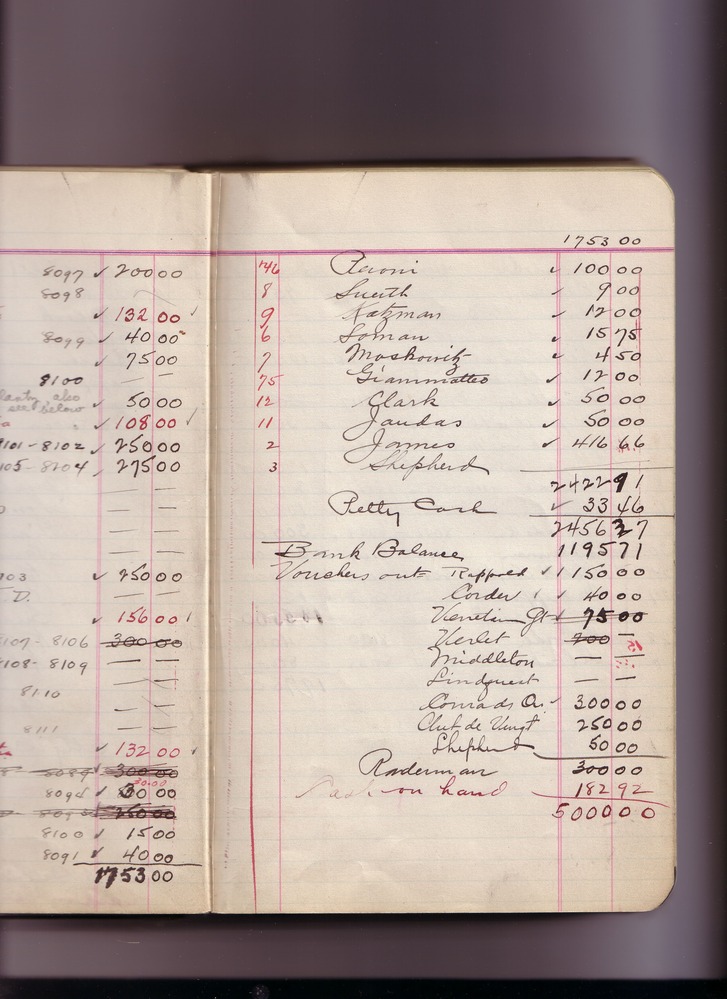 8097 ✓ 200 00
8098
✓ 132 00
8099 ✓ 40 00
✓ 75 00
8100 — —
also
see below ✓ 50 00
✓ 108 00
8101-8102 ✓ 250 00
✓ 275 00
— —
— —
— —
— —
✓ 250 00
T.D. — —
✓ 156 00
8107-8106 300 00
8108-8109 — —
8110 — —
8111 — —
✓ 132 00
8089 300 00
30.00
8094 ✓ 30 00
250 00
8100 ✓ 15 00
8091 ✓ 40 00
1753 00
1753 00
146 ✓ 100 00
8 ✓ 9 00
9 Katzman ✓ 12 00
6 Loman ✓ 15 75
7 Moskovitz ✓ 4 50
75 Giammatteo ✓ 12 00
12 Clark ✓ 50 00
11 Jaudas ✓ 50 00
2 James ✓ 416 66
3 Shepherd
2422 91
Petty Cash ✓ 33 46
2456 37
Bank Balance 1195 71
Vouchers out Rappold ✓ 150 00
Corder ✓ 40 00
Venetian 75 00
Verlet 200 —
Middleton — —
Lindquest — —
Conrads ✓ 300 00
Chef de 250 00
Shepherd 50 00
Raderman 300 00
Cash on hand 182 92
5000 00